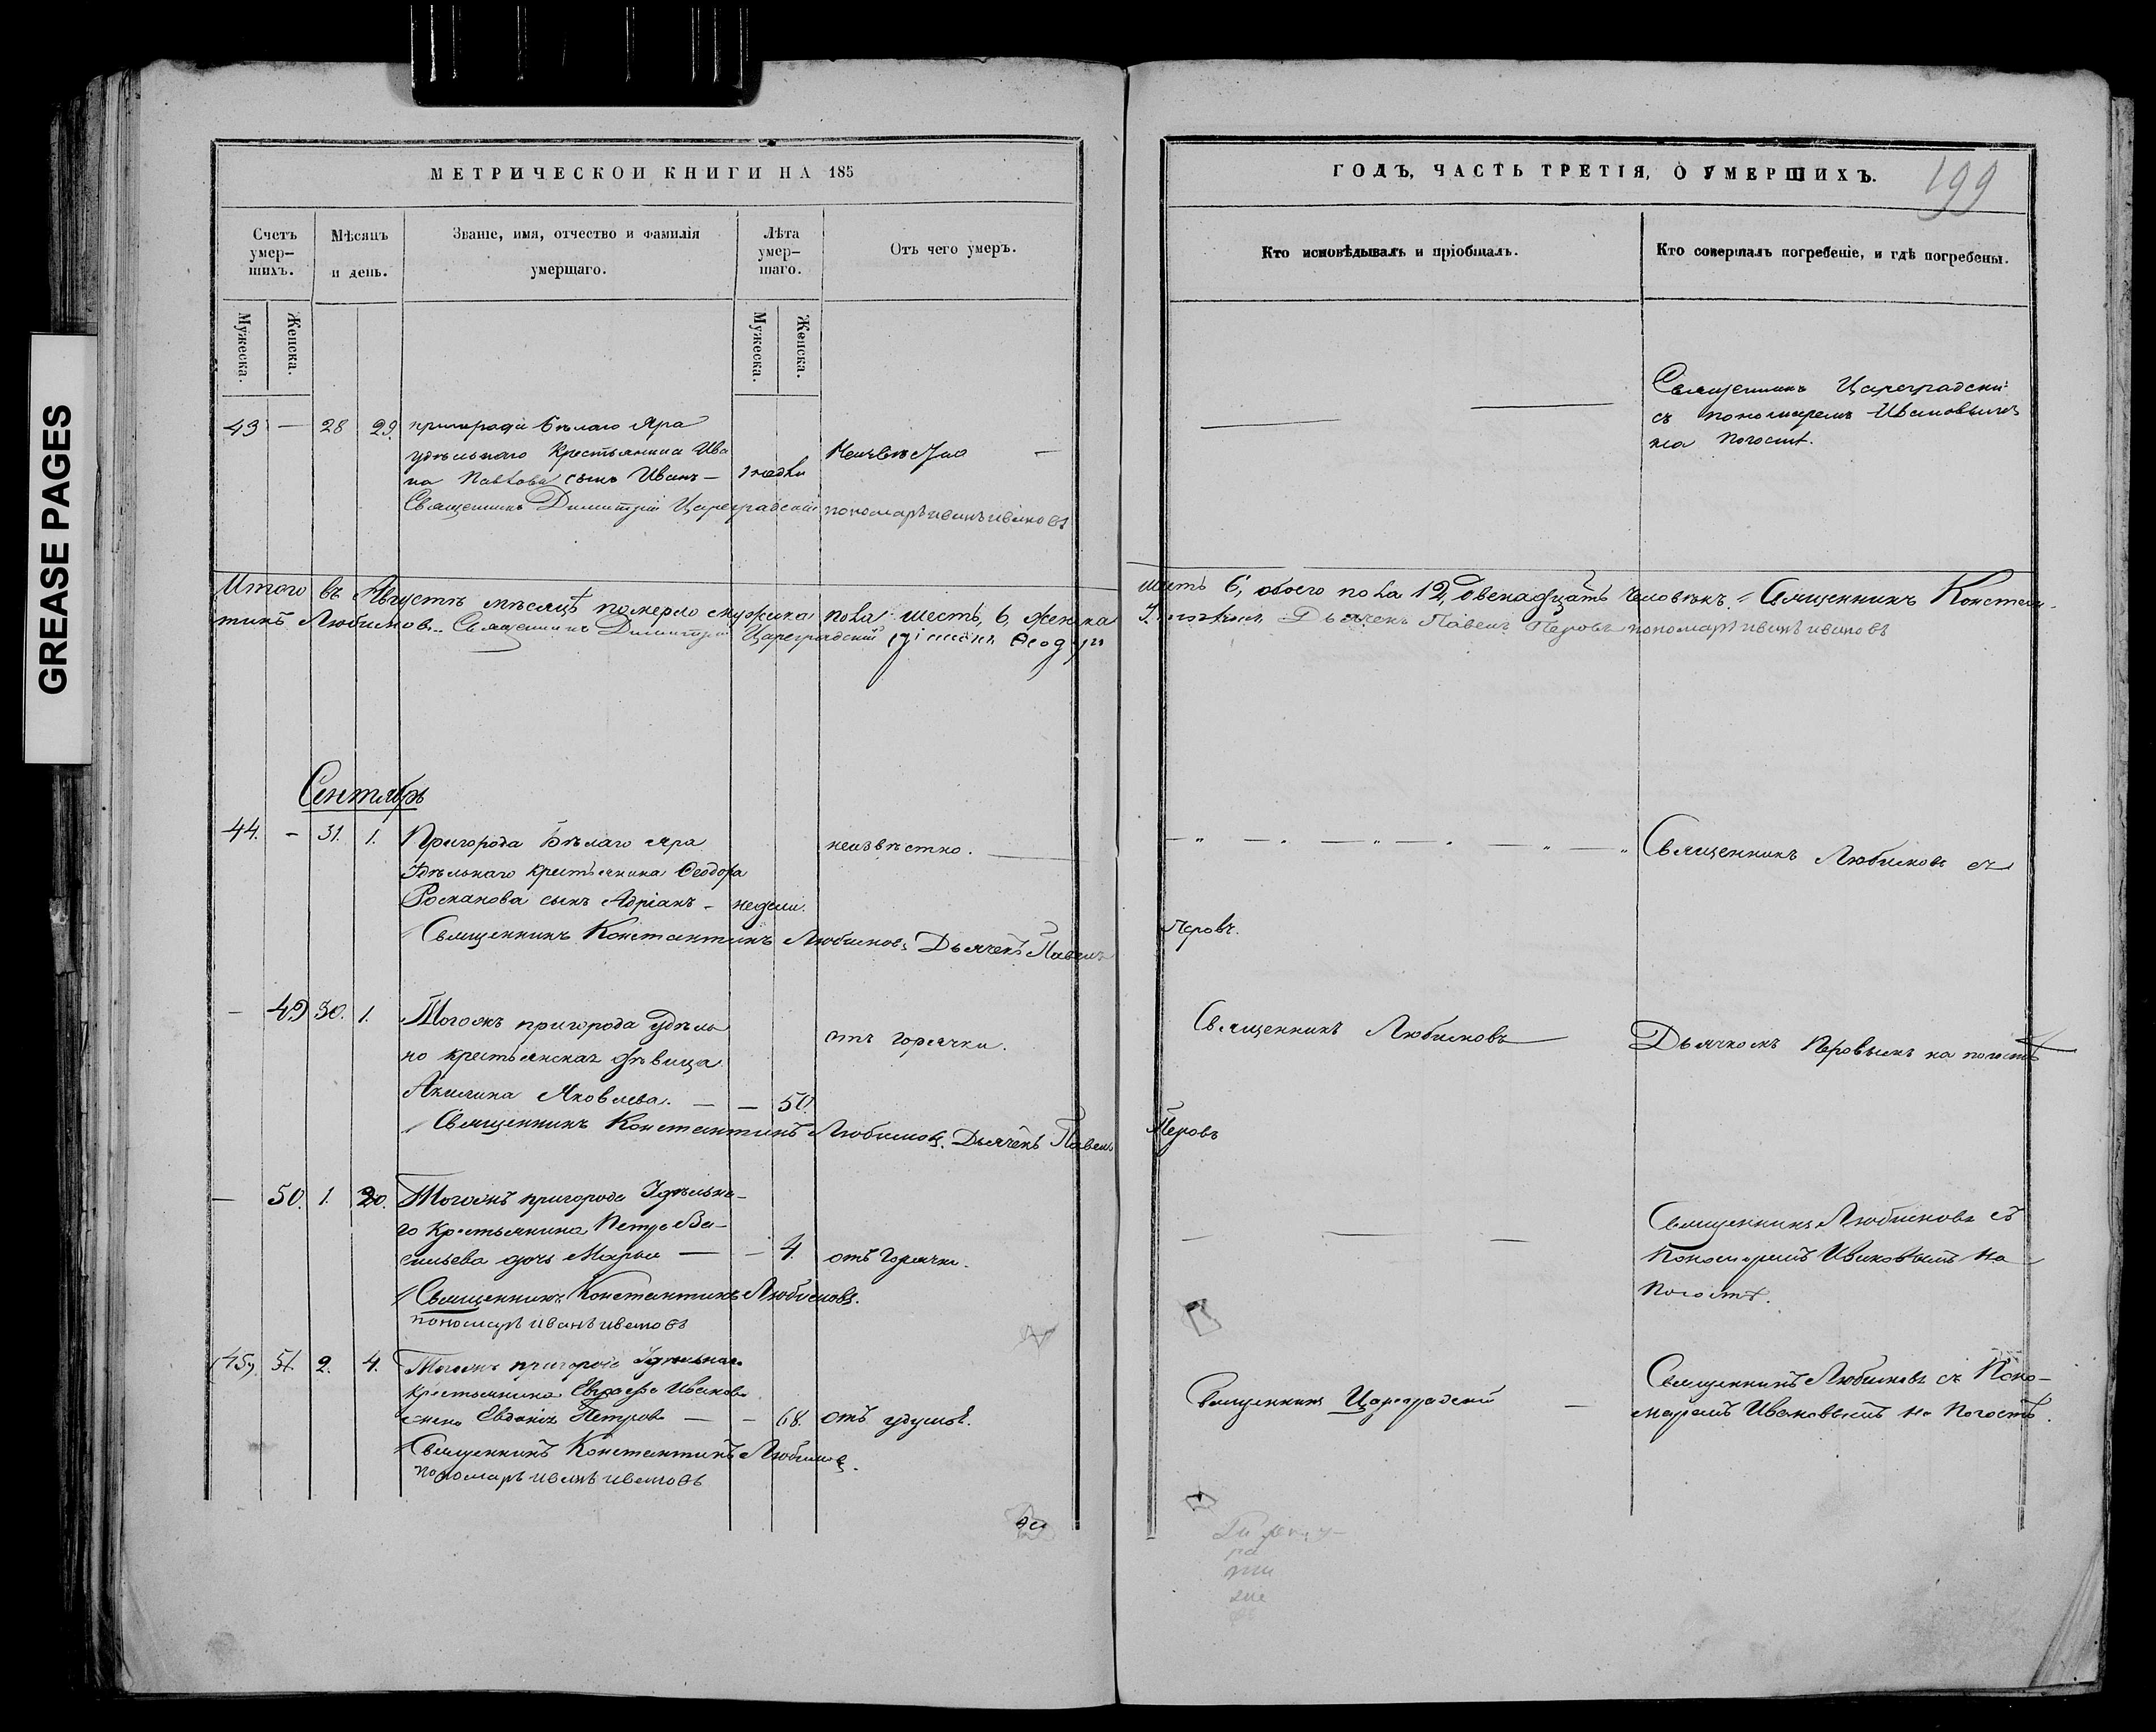 GREASE PAGES
МЕТРИЧЕСКОЙ КНИГИ НА 185
ГОДЪ, ЧАСТЬ ТРЕТІЯ, О УМЕРШИХЪ.
199
Счетъ умер-шихъ.
Мѣсяцъ и день.
Званіе, имя, отчество и фамилія умершаго.
Лѣта умер-шаго.
Отъ чего умеръ.
Кто исповѣдывалъ и пріобщалъ.
Кто совершалъ погребеніе, и гдѣ погребены.
Мужеска. Женска.
Мужеска. Женска.
43 — 28 29. пригорода Бѣлаго Яра
удѣльнаго Крестьянина Ива
на Павлова сынъ Иванъ —
Неизвѣстно —
Священникъ Цареградскій
съ пономаремъ Ивановымъ
на погостѣ.
Священникъ Димитрій Цареградскій пономарь иванъ ивановъ
Итого въ Августѣ мѣсяцѣ померло мужска пола шесть, 6, женска шесть 6, обоего пола 12, двенадцать человѣкъ. Священникъ Констан-
тинъ Любимовъ. Священникъ Димитрій Цареградскій Дьячекъ Павелъ Перовъ пономарь иванъ ивановъ
Сентябрь
44. — 31. 1. Пригорода Бѣлаго Яра
Удѣльнаго крестьянина Ѳеодора
Романова сынъ Адріанъ — недели.
неизвѣстно. —
Священникъ Любимовъ съ
Священникъ Константинъ Любимовъ Дьячекъ Павелъ Перовъ.
— 49 30. 1. Тогожъ пригорода удѣль
но крестьянская дѣвица
Акилина Яковлева. — — 50.
отъ горячки.
Священникъ Любимовъ
Дьячкомъ Перовымъ на погостѣ
Священникъ Константинъ Любимовъ. Дьячекъ Павелъ Перовъ
— 50. 1. 20. Тогожъ пригорода Удѣльна-
го Крестьянина Петра Ва-
сильева дочь Марья — — 4. отъ горячки.
Священникъ Любимовъ съ
Пономаремъ Ивановымъ на
Погостѣ.
Священникъ Константинъ Любимовъ.
пономарь иванъ ивановъ
45 51. 2. 4. Тогожъ пригорода Удѣльнаго
крестьянина Евграфа Иванова
жена Евдокія Петрова — — 68. отъ удушья.
Священникъ Цареградскій —
Священникъ Любимовъ съ Поно-
маремъ Ивановымъ на Погостѣ.
Священникъ Константинъ Любимовъ.
пономарь иванъ ивановъ